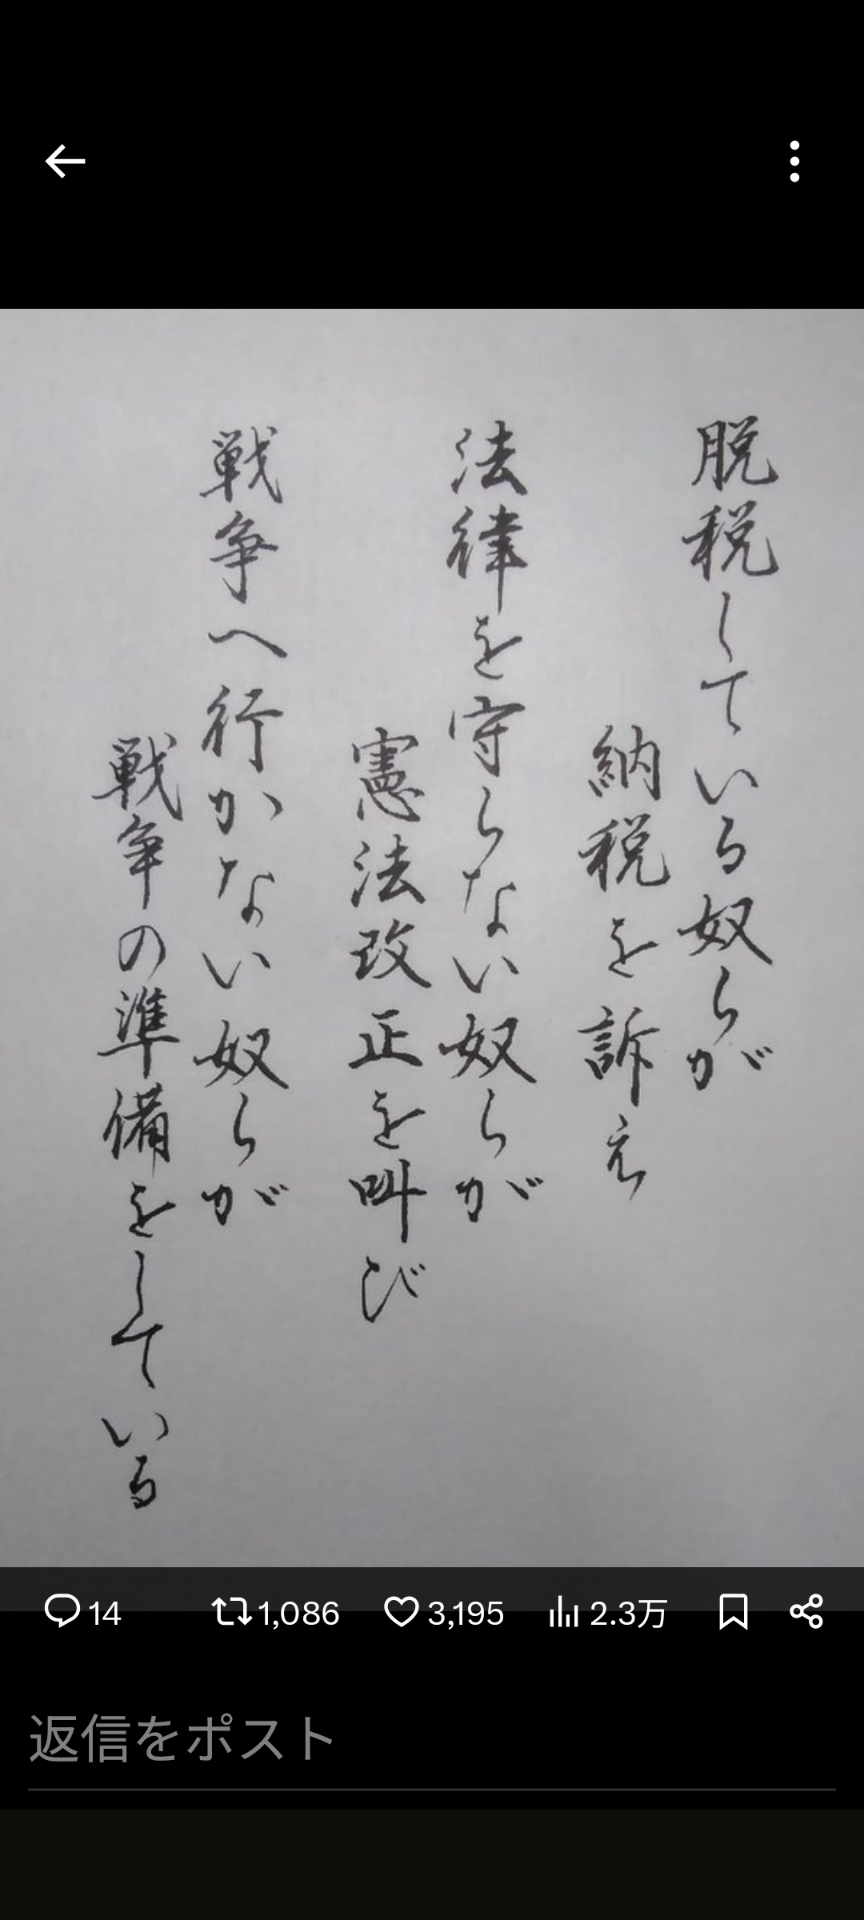 脱税している奴らが
納税を訴え
法律を守らない奴らが
憲法改正を叫び
戦争へ行かない奴らが
戦争の準備をしている
14 1,086 3,195 2.3万
返信をポスト